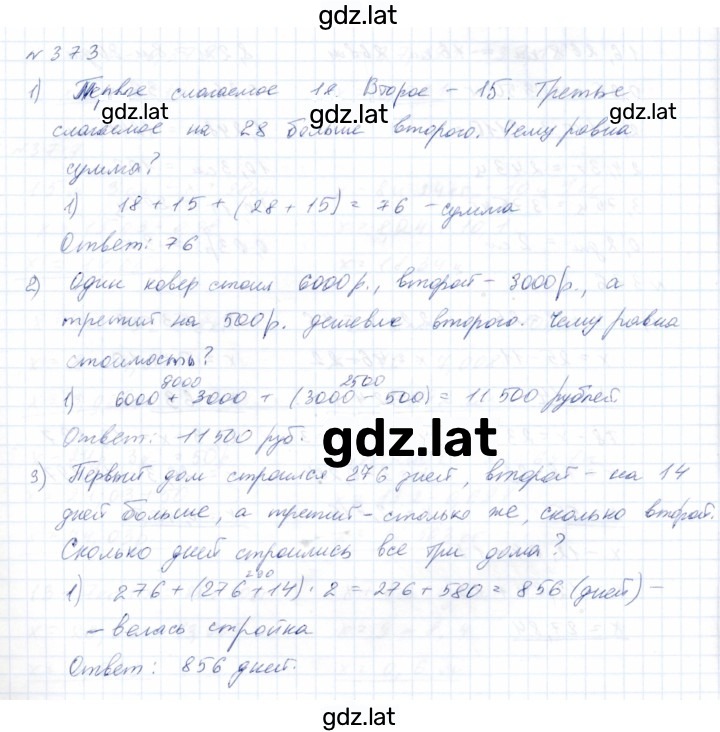 gdz.lat
№ 373
1) Первое слагаемое 18. Второе – 15. Третье
gdz.lat gdz.lat gdz.lat
слагаемое на 28 больше второго. Чему равна
сумма?
1) 18 + 15 + (28 + 15) = 76 – сумма
Ответ: 76
2) Один ковер стоил 6000 р., второй – 3000 р., а
третий на 500 р. дешевле второго. Чему равна
стоимость?
9000 2500
1) 6000 + 3000 + (3000 – 500) = 11500 рублей
Ответ: 11500 руб.
gdz.lat
3) Первый дом строился 276 дней, второй – на 14
дней больше, а третий – столько же, сколько второй.
Сколько дней строились все три дома?
290
1) 276 + (276 + 14) · 2 = 276 + 580 = 856 (дней) –
– велась стройка
Ответ: 856 дней.
gdz.lat gdz.lat gdz.lat
gdz.lat